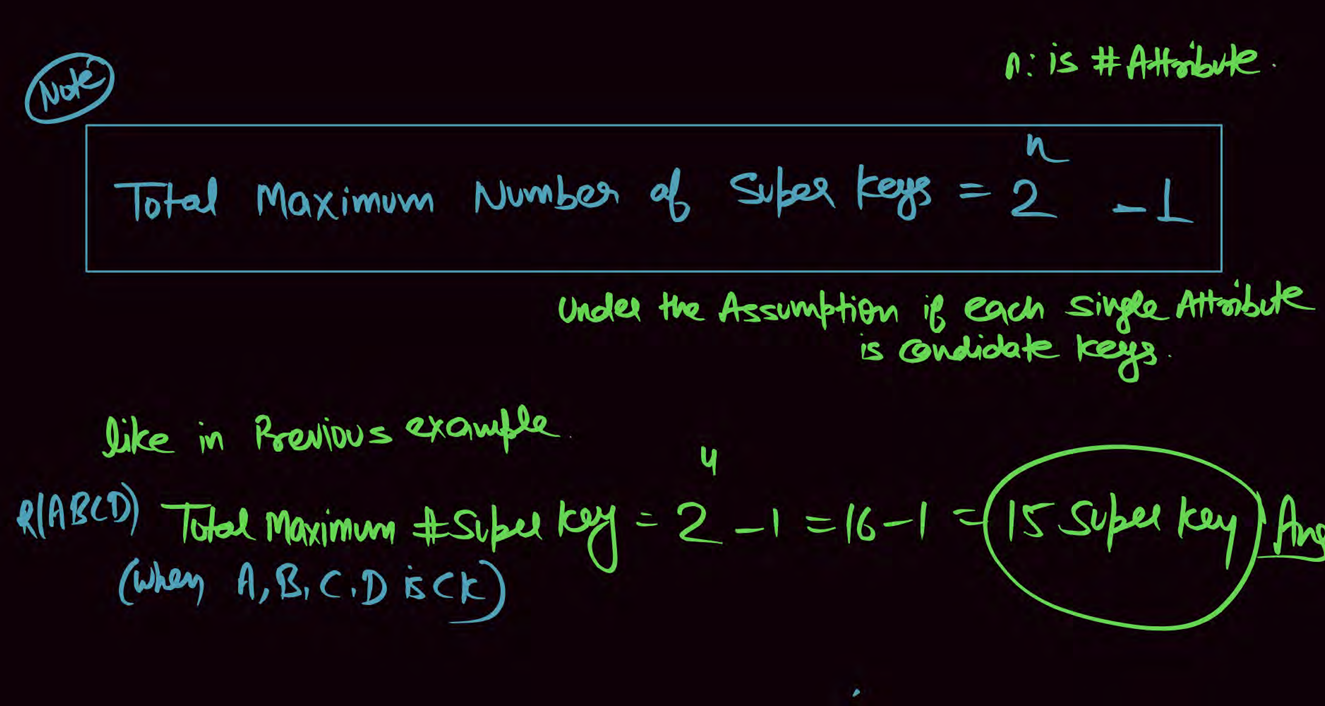 Note
n: is #Attribute.
Total Maximum Number of Super keys = 2^n - 1
Under the Assumption if each single Attribute
is candidate keys.
like in Previous example.
R(ABCD) Total Maximum #Super key = 2^4 - 1 = 16 - 1 = 15 Super key Ans
(when A, B, C, D is CK)